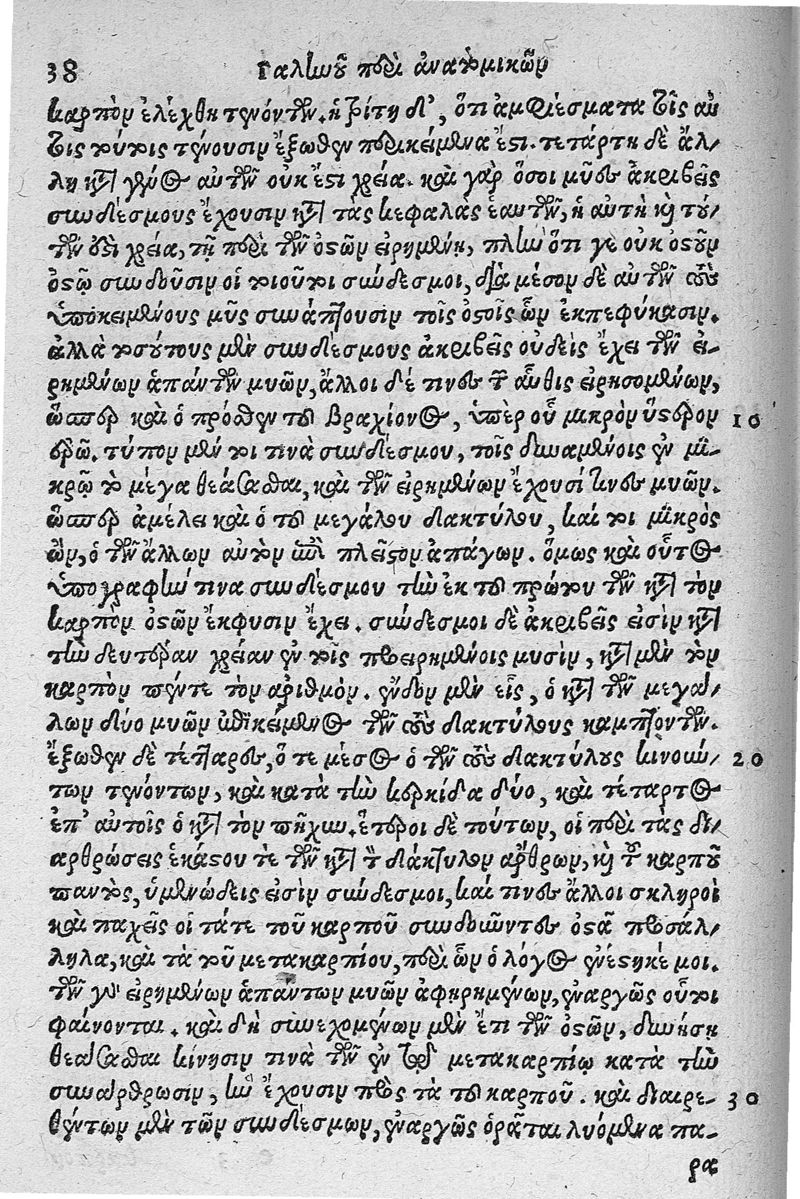 38 Γαλίωοῦ περὶ ἀνατομικῶν
καρπὸν ἐλέχθη τενόντων. ἡ τρίτη δ', ὅτι ἀμφιέσματα τοῖς αὐ
τοῖς τούτοις τένουσιν ἔξωθεν περικείμενα ἔστι. τετάρτη δὲ ἄλ-
λη κατὰ γένος αὐτῶν οὐκ ἔστι χρεία. καὶ γὰρ ὅσοι μῦες ἀκριβεῖς
συνδέσμους ἔχουσιν κατὰ τὰς κεφαλὰς ἑαυτῶν, ἡ αὐτὴ καὶ τού-
των ἐστὶ χρεία, τῇ περὶ τῶν ὀστῶν εἰρημένῃ, πλὴν ὅτι γε οὐκ ὀστοῦν
ὀστῷ συνδοῦσιν οἱ τοιοῦτοι σύνδεσμοι, διὰ μέσον δὲ αὐτῶν τοὺς
ὑποκειμένους μῦς συνάπτουσιν τοῖς ὀστοῖς ὧν ἐκπεφύκασιν.
ἀλλὰ τοσούτους μὲν συνδέσμους ἀκριβεῖς οὐδεὶς ἔχει τῶν εἰ-
ρημένων ἁπάντων μυῶν, ἄλλοι δέ τινες τῶν αὖθις εἰρησομένων,
ὥσπερ καὶ ὁ πρόσθεν τοῦ βραχίονος, ὑπὲρ οὗ μικρὸν ὕστερον 10
ἐρῶ. τύπον μέν τοι τινὰ συνδέσμου, τοῖς δυναμένοις ἐν μι-
κρῷ τὸ μέγα θεάσασθαι, καὶ τῶν εἰρημένων ἔχουσί τινες μυῶν.
ὥσπερ ἀμέλει καὶ ὁ τοῦ μεγάλου δακτύλου, καί τοι μικρὸς
ὤν, ὁ τῶν ἄλλων αὐτὸν ἐπὶ πλεῖστον ἀπάγων. ὅμως καὶ οὗτος
ὑπογραφήν τινα συνδέσμου τὴν ἐκ τοῦ πρώτου τῶν κατὰ τὸν
καρπὸν ὀστῶν ἔκφυσιν ἔχει. σύνδεσμοι δὲ ἀκριβεῖς εἰσὶν κατὰ
τὴν δευτέραν χρείαν ἐν τοῖς προειρημένοις μυσὶν, κατὰ μὲν τὸν
καρπὸν πέντε τὸν ἀριθμόν. ἔνδον μὲν εἷς, ὁ κατὰ τῶν μεγά-
λων δύο μυῶν ἐπικείμενος τῶν τοὺς δακτύλους καμπτόντων.
ἔξωθεν δὲ τέτταρες, ὅ τε μέσος ὁ τῶν τοὺς δακτύλους κινούν- 20
των τενόντων, καὶ κατὰ τὴν κερκίδα δύο, καὶ τέταρτος
ἐπ' αὐτοῖς ὁ κατὰ τὸν πῆχυν. ἕτεροι δὲ τούτων, οἱ περὶ τὰς δι-
αρθρώσεις ἑκάστου τε τῶν κατὰ τὸν δάκτυλον ἄρθρων, καὶ τοῦ καρποῦ
παντὸς, ὑμενώδεις εἰσὶν σύνδεσμοι, καί τινες ἄλλοι σκληροὶ
καὶ παχεῖς οἱ τάτε τοῦ καρποῦ συνδοῦντες ὀστᾶ πρὸς ἄλ-
ληλα, καὶ τὰ τοῦ μετακαρπίου, περὶ ὧν ὁ λόγος ἐνέστηκέ μοι.
τῶν γὰρ εἰρημένων ἁπάντων μυῶν ἀφῃρημένων, ἐναργῶς οὗτοι
φαίνονται. καὶ δὴ συνεχομένων μὲν ἔτι τῶν ὀστῶν, δυνήσῃ
θεάσασθαι κίνησιν τινὰ τῶν ἐν τῷ μετακαρπίῳ κατὰ τὴν
συνάρθρωσιν, ἣν ἔχουσιν πρὸς τὰ τοῦ καρποῦ. καὶ διαιρε- 30
θέντων μὲν τῶν συνδέσμων, ἐναργῶς ὁρᾶται λυόμενα πα-
ρα